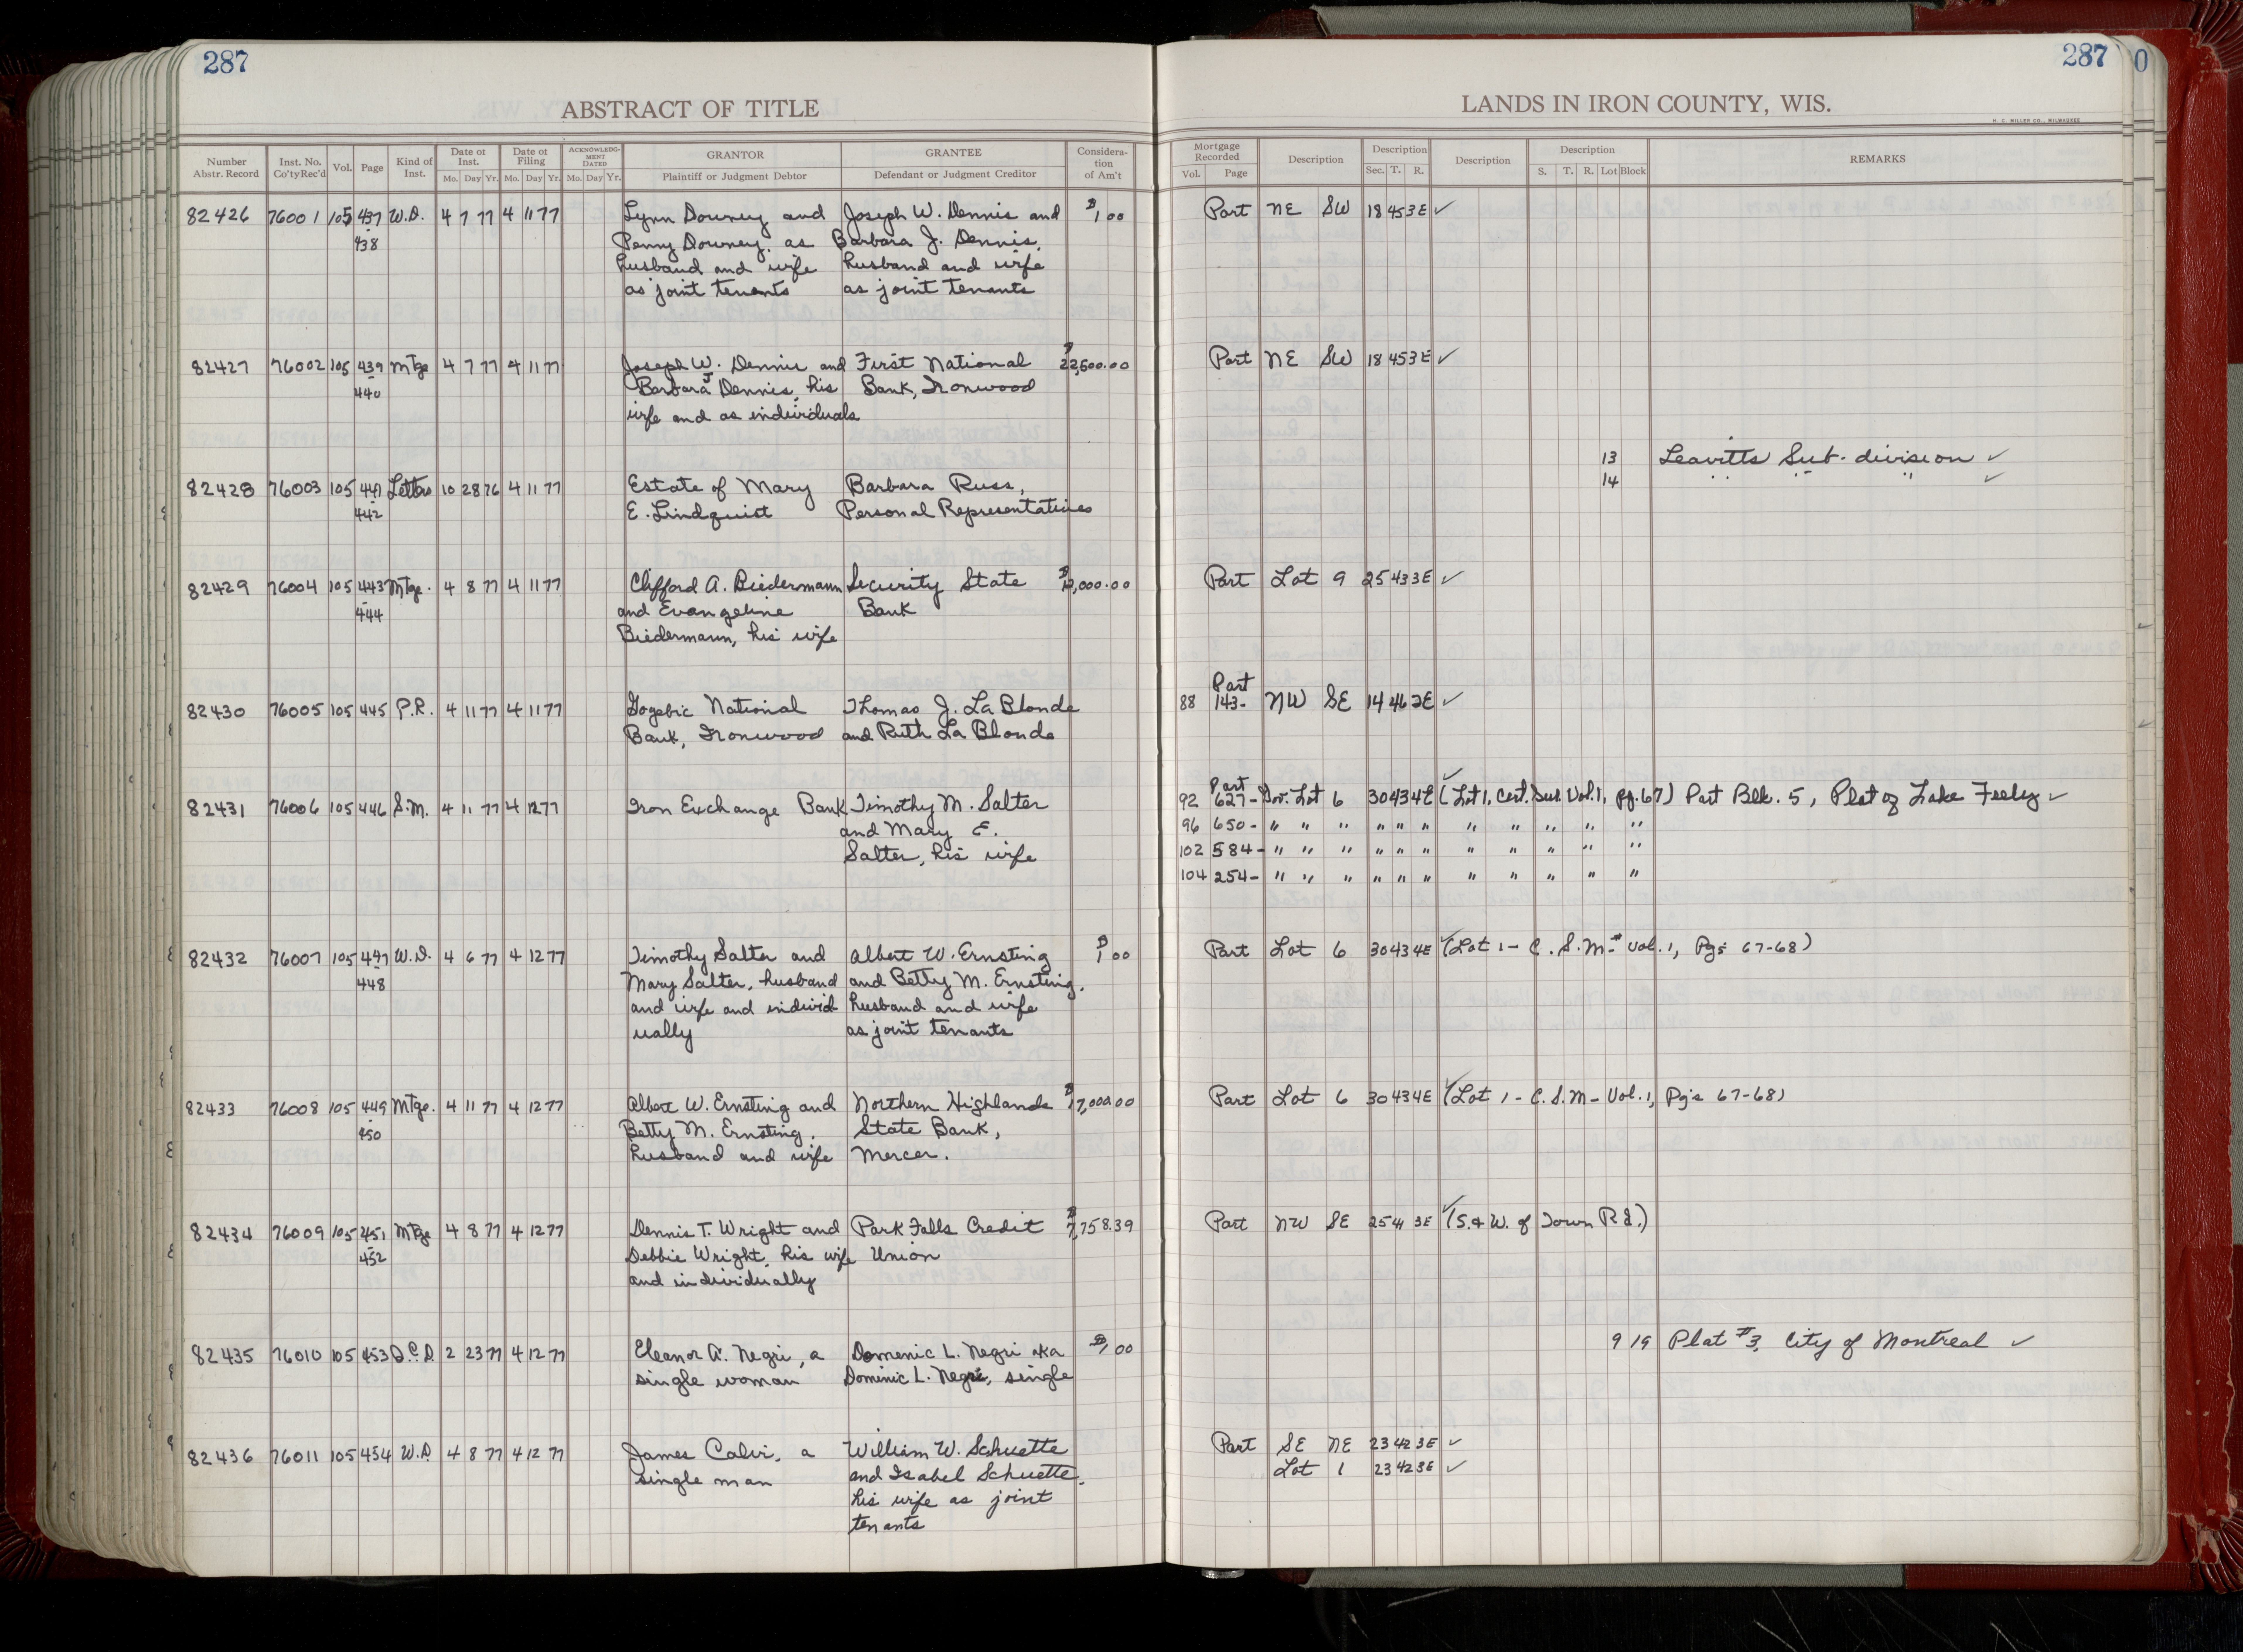 287
287
0
ABSTRACT OF TITLE
LANDS IN IRON COUNTY, WIS.
H. C. MILLER CO., MILWAUKEE
Number Abstr. Record Inst. No. Co'ty Rec'd Vol. Page Kind of Inst. Date of Inst. Mo. Day Yr. Date of Filing Mo. Day Yr. ACKNOWLEDGMENT DATED Mo. Day Yr. GRANTOR Plaintiff or Judgment Debtor GRANTEE Defendant or Judgment Creditor Consideration of Am't
Mortgage Recorded Vol. Page Description Description Sec. T. R. Description Description S. T. R. Lot Block REMARKS
82426 76001 105 437 W.D. 4 7 77 4 11 77 Lynn Downey and Joseph W. Dennis and $1 00 Part NE SW 18 45 3E ✓
438 Penny Downey, as Barbara J. Dennis,
husband and wife husband and wife
as joint tenants as joint tenants
82427 76002 105 439 Mtge 4 7 77 4 11 77 Joseph W. Dennis and First National Part NE SW 18 45 3E ✓
440 Barbara J Dennis, his Bank, Ironwood
wife and as individuals
13 Leavitts Sub-division ✓
14 " " " ✓
82428 76003 105 441 Letters 10 28 76 4 11 77 Estate of Mary Barbara Russ,
442 E. Lindquist Personal Representatives
82429 76004 105 443 Mtge. 4 8 77 4 11 77 Clifford A. Biedermann Security State Part Lot 9 25 43 3E ✓
444 and Evangeline Bank
Biedermann, his wife
Part
82430 76005 105 445 P.R. 4 11 77 4 11 77 Gogebic National Thomas J. La Blonde 88 143- NW SE 14 46 2E ✓
Bank, Ironwood and Ruth La Blonde
Part
82431 76006 105 446 S.M. 4 11 77 4 12 77 Iron Exchange Bank Timothy M. Salter 92 627- Gov. Lot 6 30 43 4E (Lot 1, Cert. Sur. Vol. 1, pg. 67) Part Blk. 5, Plat of Lake Feely ✓
and Mary E. 96 650- " " " " " " " " " " "
Salter, his wife 102 584- " " " " " " " " " " "
104 254- " " " " " " " " " " "
82432 76007 105 447 W.D. 4 6 77 4 12 77 Timothy Salter and Albert W. Ernsting $1 00 Part Lot 6 30 43 4E ✓ (Lot 1- C.S.M-# Vol. 1, Pgs 67-68)
448 Mary Salter, husband and Betty M. Ernsting,
and wife and individ husband and wife
ually as joint tenants
82433 76008 105 449 Mtge. 4 11 77 4 12 77 Albert W. Ernsting and Northern Highlands $17,000.00 Part Lot 6 30 43 4E ✓ (Lot 1- C.S.M- Vol. 1, Pgs 67-68)
450 Betty M. Ernsting, State Bank,
husband and wife Mercer.
82434 76009 105 451 Mtge 4 8 77 4 12 77 Dennis T. Wright and Park Falls Credit $7,758.39 Part NW SE 25 41 3E ✓ (S. & W. of Town Rd.)
452 Debbie Wright, his wife Union
and individually
82435 76010 105 453 Q.C.D. 2 23 77 4 12 77 Eleanor A. Negri, a Domenic L. Negri aka $1 00 9 19 Plat #3, City of Montreal ✓
single woman Dominic L. Negri, single
82436 76011 105 454 W.D. 4 8 77 4 12 77 James Calvi, a William W. Schuette Part SE NE 23 42 3E ✓
single man and Isabel Schuette, Lot 1 23 42 3E ✓
his wife as joint
tenants